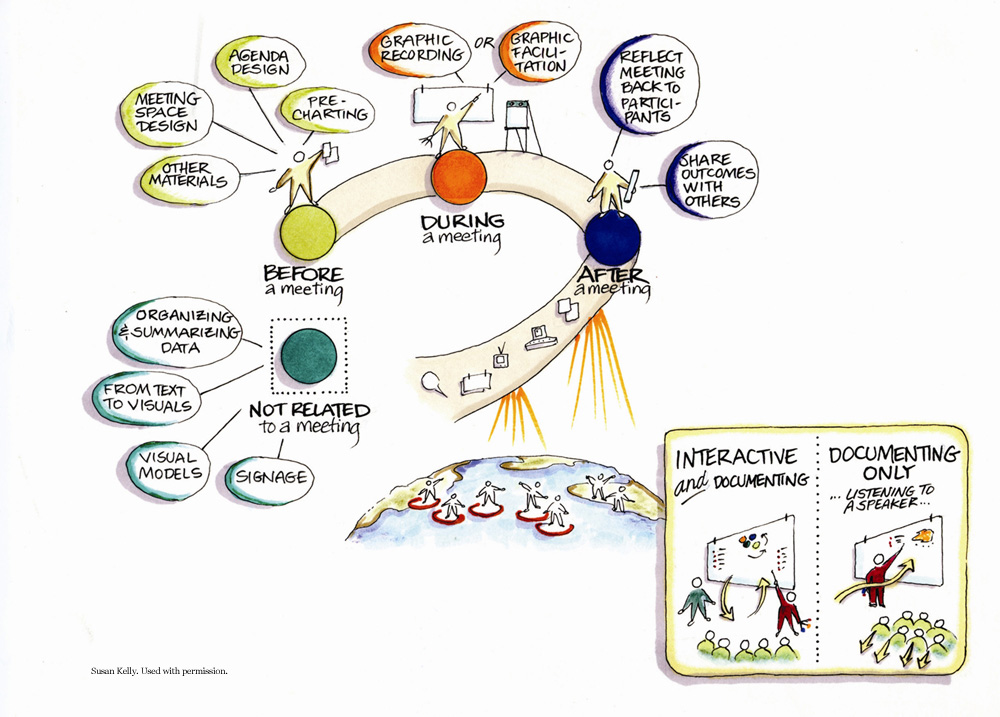 AGENDA
DESIGN
MEETING
SPACE
DESIGN
PRE-
CHARTING
OTHER
MATERIALS
GRAPHIC
RECORDING
OR
GRAPHIC
FACILI-
TATION
REFLECT
MEETING
BACK TO
PARTICI-
PANTS
SHARE
OUTCOMES
WITH
OTHERS
BEFORE
a meeting
DURING
a meeting
AFTER
a meeting
ORGANIZING
& SUMMARIZING
DATA
FROM TEXT
TO VISUALS
VISUAL
MODELS
SIGNAGE
NOT RELATED
to a meeting
INTERACTIVE
and DOCUMENTING
DOCUMENTING
ONLY
... LISTENING TO
A SPEAKER...
Susan Kelly. Used with permission.